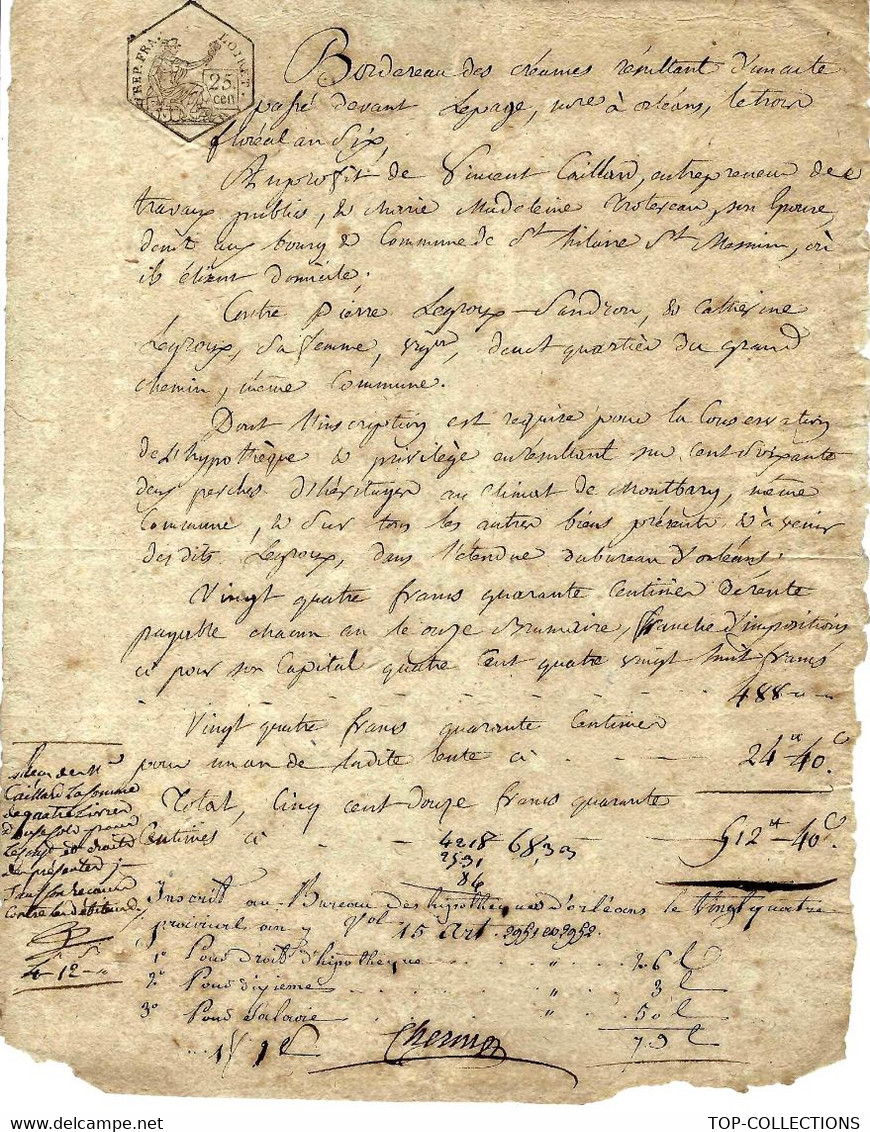 REP. FRA. LOIRET.
25
cen
Bordereau des créances résultant d'un acte
passé devant Lepage, nore à orléans, le trois
floréal an Six,
Au profit de Vincent Caillard, entrepreneur de
travaux publics, & Marie Madeleine Trotereau, son Epouse,
demt au bourg & Commune de St hilaire St Mesmin, où
ils élisent domicile.
Contre pierre Legroux-Landron, & Catherine
Legroux, Sa femme, vigon, demt quartier du grand
chemin, même Commune.
Dont l'inscription est requise pour la Conservation
de L'hypothèque & privilège en résultant sur Cent Soixante
deux perches d'héritages au Climat de Montbary, même
Commune, & Sur tous les autres biens présents & à venir
desdits Legroux, dans l'étendue du bureau d'orléans.
Vingt quatre francs quarante Centimes de rente
payable chacun an le onze Brumaire, franche d'impositions
ci pour son Capital quatre Cent quatre vingt huit francs
488 " "
Vingt quatre francs quarante Centimes
pour un an de ladite rente ci - - - 24 tt 40 c.
Total, Cinq cent douze francs quarante
Centimes ci - - 512 tt 40 c.
4218 68,33
2531
86
Inscrit au Bureau des hipotheques d'orléans le Vingt quatre
prairial an 7 Vol 15 Art. 2951 et 2952.
1° Pour droit d'hipotheque " 26 c
2° Pour dixieme " 3 c
3° Pour Salaire " 50 c
79 c
de M.
Caillard La Somme
de quatre Livres
Douze Sols pour
et droits
du présenter;
Sauf Son recours
Contre les débiteurs
4-12-"